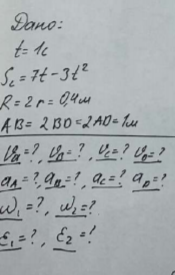 Дано:
t=1c
Sc=7t-3t²
R=2r=0,4м
AB=2BD=2AD=1м
VB=?, VA=?, VC=?, VD=?
aA=?, aB=?, aC=?, aD=?
ω1=?, ω2=?
ε1=?, ε2=?